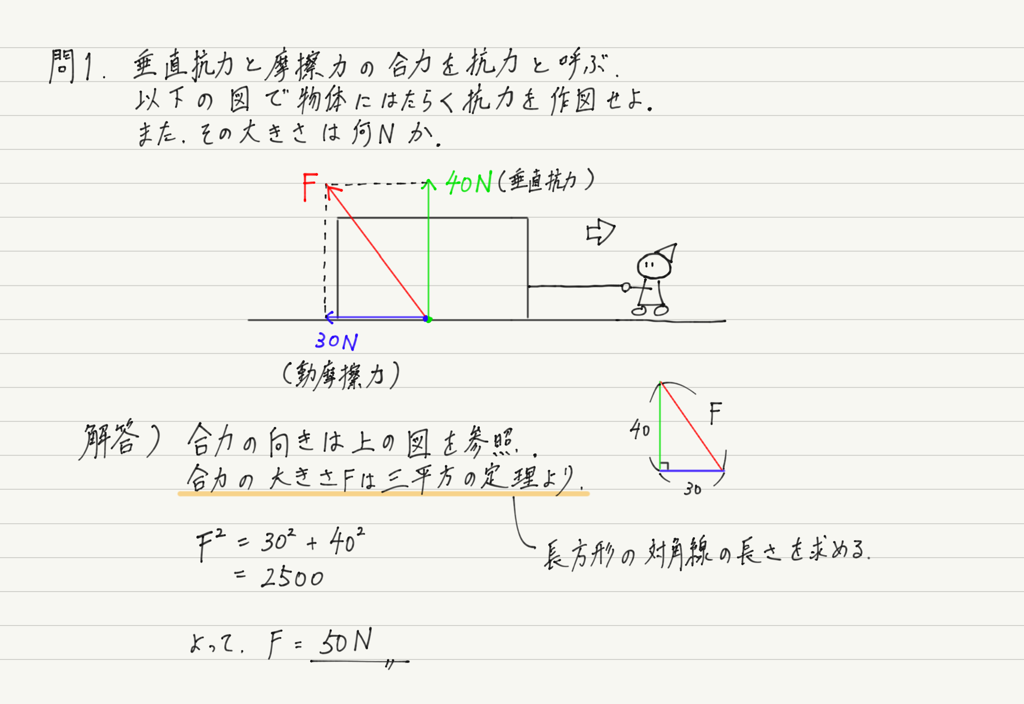 問1. 垂直抗力と摩擦力の合力を抗力と呼ぶ.
以下の図で物体にはたらく抗力を作図せよ.
また.その大きさは何Nか.
F
40N(垂直抗力)
30N
(動摩擦力)
40
F
30
解答) 合力の向きは上の図を参照.
合力の大きさFは三平方の定理より.
F² = 30² + 40²
= 2500
長方形の対角線の長さを求める.
よって. F = 50N